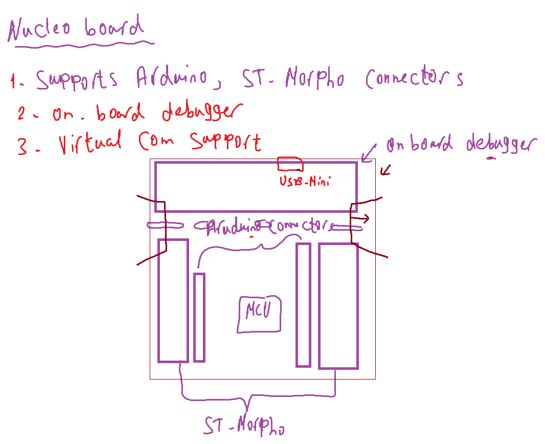 Nucleo board
1. Supports Arduino, ST-Morpho connectors
2. on-board debugger
3. Virtual Com Support
onboard debugger
USB-Mini
Aruduino connector
MCU
ST-Morpho